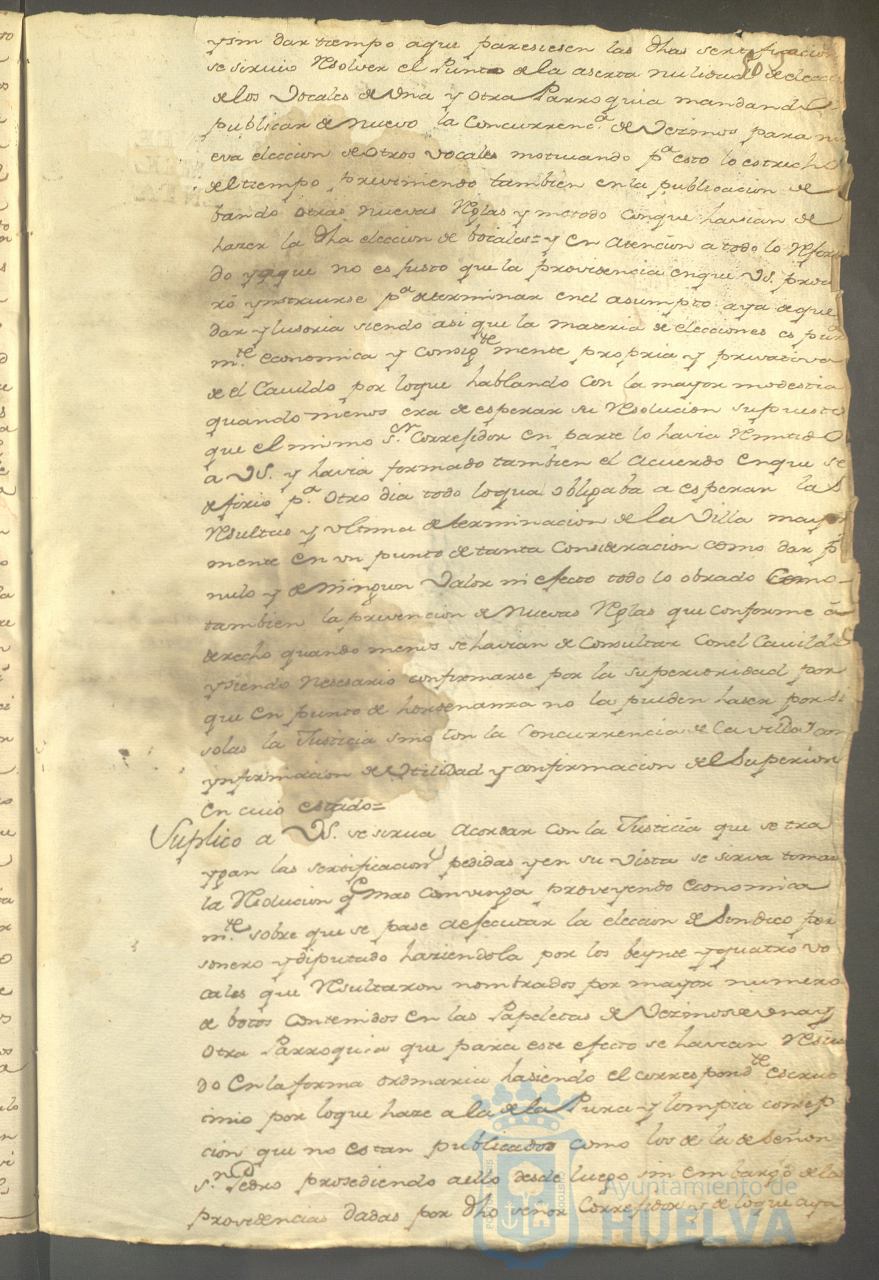 ysin dar tiempo aque paresiesen las dhas sertificacion
se siruio Resolver el Punto de la aserta nulidad de elecci
de los Vocales de Vna y Otra Parroquia mandando
publicar de nuevo la Concurrenc.ª de Vezinos para nu
eva eleccion de Otros vocales motivando p.ª esto lo estrecho
del tiempo, previniendo tambien en la publicacion de
bando otras nuevas Reglas y metodo conque havian de
hazer la dha eleccion de bocales = y en atencion a todo lo Refori
do yaque no es justo que la providencia enque VS. procu
ró ynstruirse p.ª determinar enel asumpto aya de que
dar ylusoria siendo asi que la materia de elecciones es pur
m.te economica y consig.te mente propria y privativa
de el Cavildo por loque hablando con la mayor modestia
quando menos era de esperar su Resolucion supuesto
que el mismo S.or Corregidor en parte lo havia Remitido
a VS. y havia formado tambien el Acuerdo enque se
defirio p.ª Otro dia todo loqual obligaba a esperar las
Resultas y vltima determinacion de la Villa mayor
mente en vn punto de tanta Consideracion como dar p.r
nulo y de ningun Valor ni efecto todo lo obrado Como
tambien la prevencion de Nuevas Reglas que conforme à
derecho quando menos se havian de Consultar Conel Cavildo
ysiendo nesesario confirmarse por la superioridad por
que en punto de hordenanza no la pueden haser por si
solas la Justicia sino con la Concurrencia de Cavildo y con
ynformacion de Vtilidad y confirmacion del Superior
En cuio estado =
Suplico a VS. se sirva acordar con la Justicia que se tra
ygan las sertificacion.s pedidas yen su vista se sirva tomar
la Resolucion q.e mas convenga proveyendo economica
m.te sobre que se pase aefecutar la eleccion de Sindico per
sonero y diputado hasiendola por los beynte yquatro vo
cales que Resultaron nombrados por mayor numero
de botos contenidos en las Papeletas de Vezinos de Vna y
Otra Parroquia que para este efecto se havian Resiui
do en la forma ordinaria hasiendo el correspond.te escruti
nio por loque haze a la de la Pura y limpia consep
cion que no estan publicados como los de la de Señor
S.n Pedro prosediendo aello desde luego sin embargo de las
providencias dadas por dho señor Corregidor y de loque aya
Ayuntamiento de
HUELVA